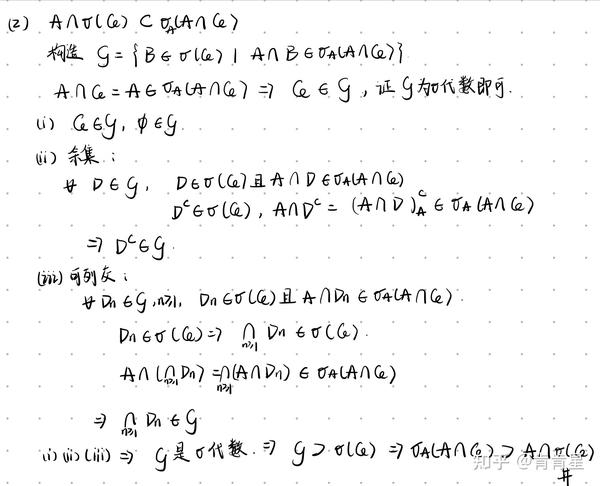 (2) A∩σ(𝒞) ⊂ σ_A(A∩𝒞)
构造 𝒢 = {B∈σ(𝒞) | A∩B∈σ_A(A∩𝒞)}
A∩𝒞 = A∈σ_A(A∩𝒞) ⇒ 𝒞∈𝒢, 证𝒢为σ代数即可.
(i) 𝒞∈𝒢, ∅∈𝒢
(ii) 余集:
∀ D∈𝒢, D∈σ(𝒞)且A∩D∈σ_A(A∩𝒞)
D^c∈σ(𝒞), A∩D^c = (A∩D)_A^c ∈ σ_A(A∩𝒞)
⇒ D^c∈𝒢.
(iii) 可列交:
∀ Dn∈𝒢, n≥1, Dn∈σ(𝒞)且A∩Dn∈σ_A(A∩𝒞).
Dn∈σ(𝒞) ⇒ ∩_{n≥1} Dn∈σ(𝒞).
A∩(∩_{n≥1}Dn) = ∩_{n≥1}(A∩Dn) ∈ σ_A(A∩𝒞)
⇒ ∩_{n≥1} Dn∈𝒢
(i)(ii)(iii) ⇒ 𝒢是σ代数. ⇒ 𝒢⊃σ(𝒞) ⇒ σ_A(A∩𝒞)⊃A∩σ(𝒞)
#
知乎 @青青星